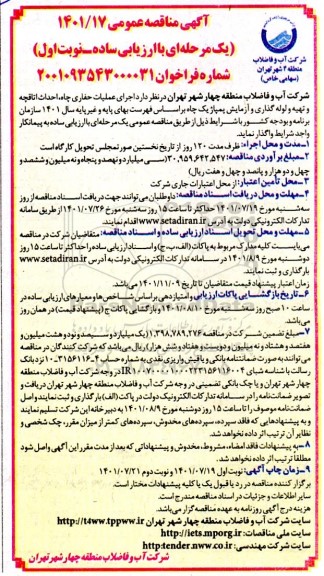 آگهی مناقصه عمومی ۱۴۰۱/۱۷
(یک مرحله‌ای با ارزیابی ساده_نوبت اول)
شماره فراخوان ۲۰۰۱۰۹۳۵۴۳۰۰۰۰۳۱
شرکت آب و فاضلاب
منطقه ۴ شهر تهران
(سهامی خاص)
شرکت آب و فاضلاب منطقه چهار شهر تهران در نظر دارد اجرای عملیات حفاری چاه، احداث اتاقچه
و تهیه و لوله گذاری و آزمایش پمپاژ یک چاه بر اساس فهرست بهای پایه و غیرپایه سال ۱۴۰۱ سازمان
برنامه و بودجه کشور با شرایط ذیل از طریق مناقصه عمومی یک مرحله‌ای با ارزیابی ساده به پیمانکار
واجد شرایط واگذار نمایند.
۱_مدت و محل اجراء: ظرف مدت ۱۲۰ روز از تاریخ نخستین صورتمجلس تحویل کارگاه است
۲_مبلغ برآوردی مناقصه: ۳۰,۹۵۹,۶۴۲,۵۴۷ (سی میلیارد و نهصد و پنجاه و نه میلیون و ششصد و
چهل و دو هزار و پانصد و چهل و هفت ریال)
۳_محل تأمین اعتبار: از محل اعتبارات جاری شرکت
۴_مهلت و محل دریافت اسناد مناقصه: داوطلبان می‌توانند جهت دریافت اسناد مناقصه از روز
سه‌شنبه مورخ ۱۴۰۱/۰۷/۱۹ حداکثر تا ساعت ۱۵ روز سه‌شنبه مورخ ۱۴۰۱/۰۷/۲۶ از طریق سامانه
تدارکات الکترونیکی دولت به آدرس www.setadiran.ir اقدام نمایند.
۵_مهلت و محل تحویل اسناد ارزیابی ساده و اسناد مناقصه: متقاضیان شرکت در مناقصه
می‌بایست کلیه مدارک مربوط به پاکات (الف، ب، ج) و اسناد ارزیابی ساده را حداکثر تا ساعت ۱۵ روز
دوشنبه مورخ ۱۴۰۱/۸/۹ در سامانه تدارکات الکترونیکی دولت به آدرس www.setadiran.ir
بارگذاری و ثبت نمایند.
زمان اعتبار پیشنهاد قیمت متقاضیان تا تاریخ ۱۴۰۱/۱۱/۰۹ می‌باشد.
۶_تاریخ بازگشایی پاکات ارزیابی و امتیازدهی براساس شاخص‌ها و معیارهای ارزیابی ساده در
ساعت ۱۰ صبح روز سه‌شنبه مورخ ۱۴۰۱/۰۸/۱۰ و بازگشایی پاکات ج (پیشنهاد قیمت) در همان روز
می‌باشد.
۷_مبلغ تضمین شرکت در مناقصه ۱,۳۹۸,۷۸۹,۲۷۶ (یک میلیارد و سیصد و نود و هشت میلیون و
هفتصد و هشتاد و نه میلیون و دویست و هفتاد و شش هزار) ریال می‌باشد که شرکت کنندگان در مناقصه
می‌توانند به صورت ضمانتنامه بانکی و یا فیش واریزی نقدی به شماره حساب
رسالت با شناسه شبای در وجه شرکت آب و فاضلاب منطقه
چهار شهر تهران و یا چک بانکی تضمینی در وجه شرکت آب و فاضلاب منطقه چهار شهر تهران دریافت و
تصویر ضمانتنامه را در سامانه تدارکات الکترونیک دولت در پاکت (الف) بارگذاری و ثبت نمایند و اصل
ضمانتنامه موصوف را تا ساعت ۱۵ روز دوشنبه مورخ ۱۴۰۱/۰۸/۹ به دبیرخانه این شرکت تسلیم نمایند
و به پیشنهادهایی که فاقد سپرده، سپرده‌های مخدوش، سپرده‌های کمتر از میزان مقرر، چک شخصی و
نظایر آن ترتیب اثر داده نخواهد شد.
۸_به پیشنهادات فاقد امضاء، مشروط، مخدوش و پیشنهاداتی که بعد از مدت مقرر این آگهی واصل شود
مطلقاً ترتیب اثر داده نخواهد شد.
۹_زمان چاپ آگهی: نوبت اول ۱۴۰۱/۰۷/۱۹ و نوبت دوم ۱۴۰۱/۰۷/۲۱
برگزار کننده مناقصه در رد یا قبول یک یا کلیه پیشنهادات مختار است.
سایر اطلاعات و جزئیات در اسناد مناقصه مندرج است.
هزینه درج آگهی روزنامه به عهده مناقصه گزار می‌باشد.
سایت شرکت آب و فاضلاب منطقه چهار شهر تهران http://t4ww.tppww.ir
سایت ملی مناقصات: http://iets.mporg.ir
سایت شرکت مهندسی: http:tender.nww.co.ir
شرکت آب و فاضلاب منطقه چهار شهر تهران